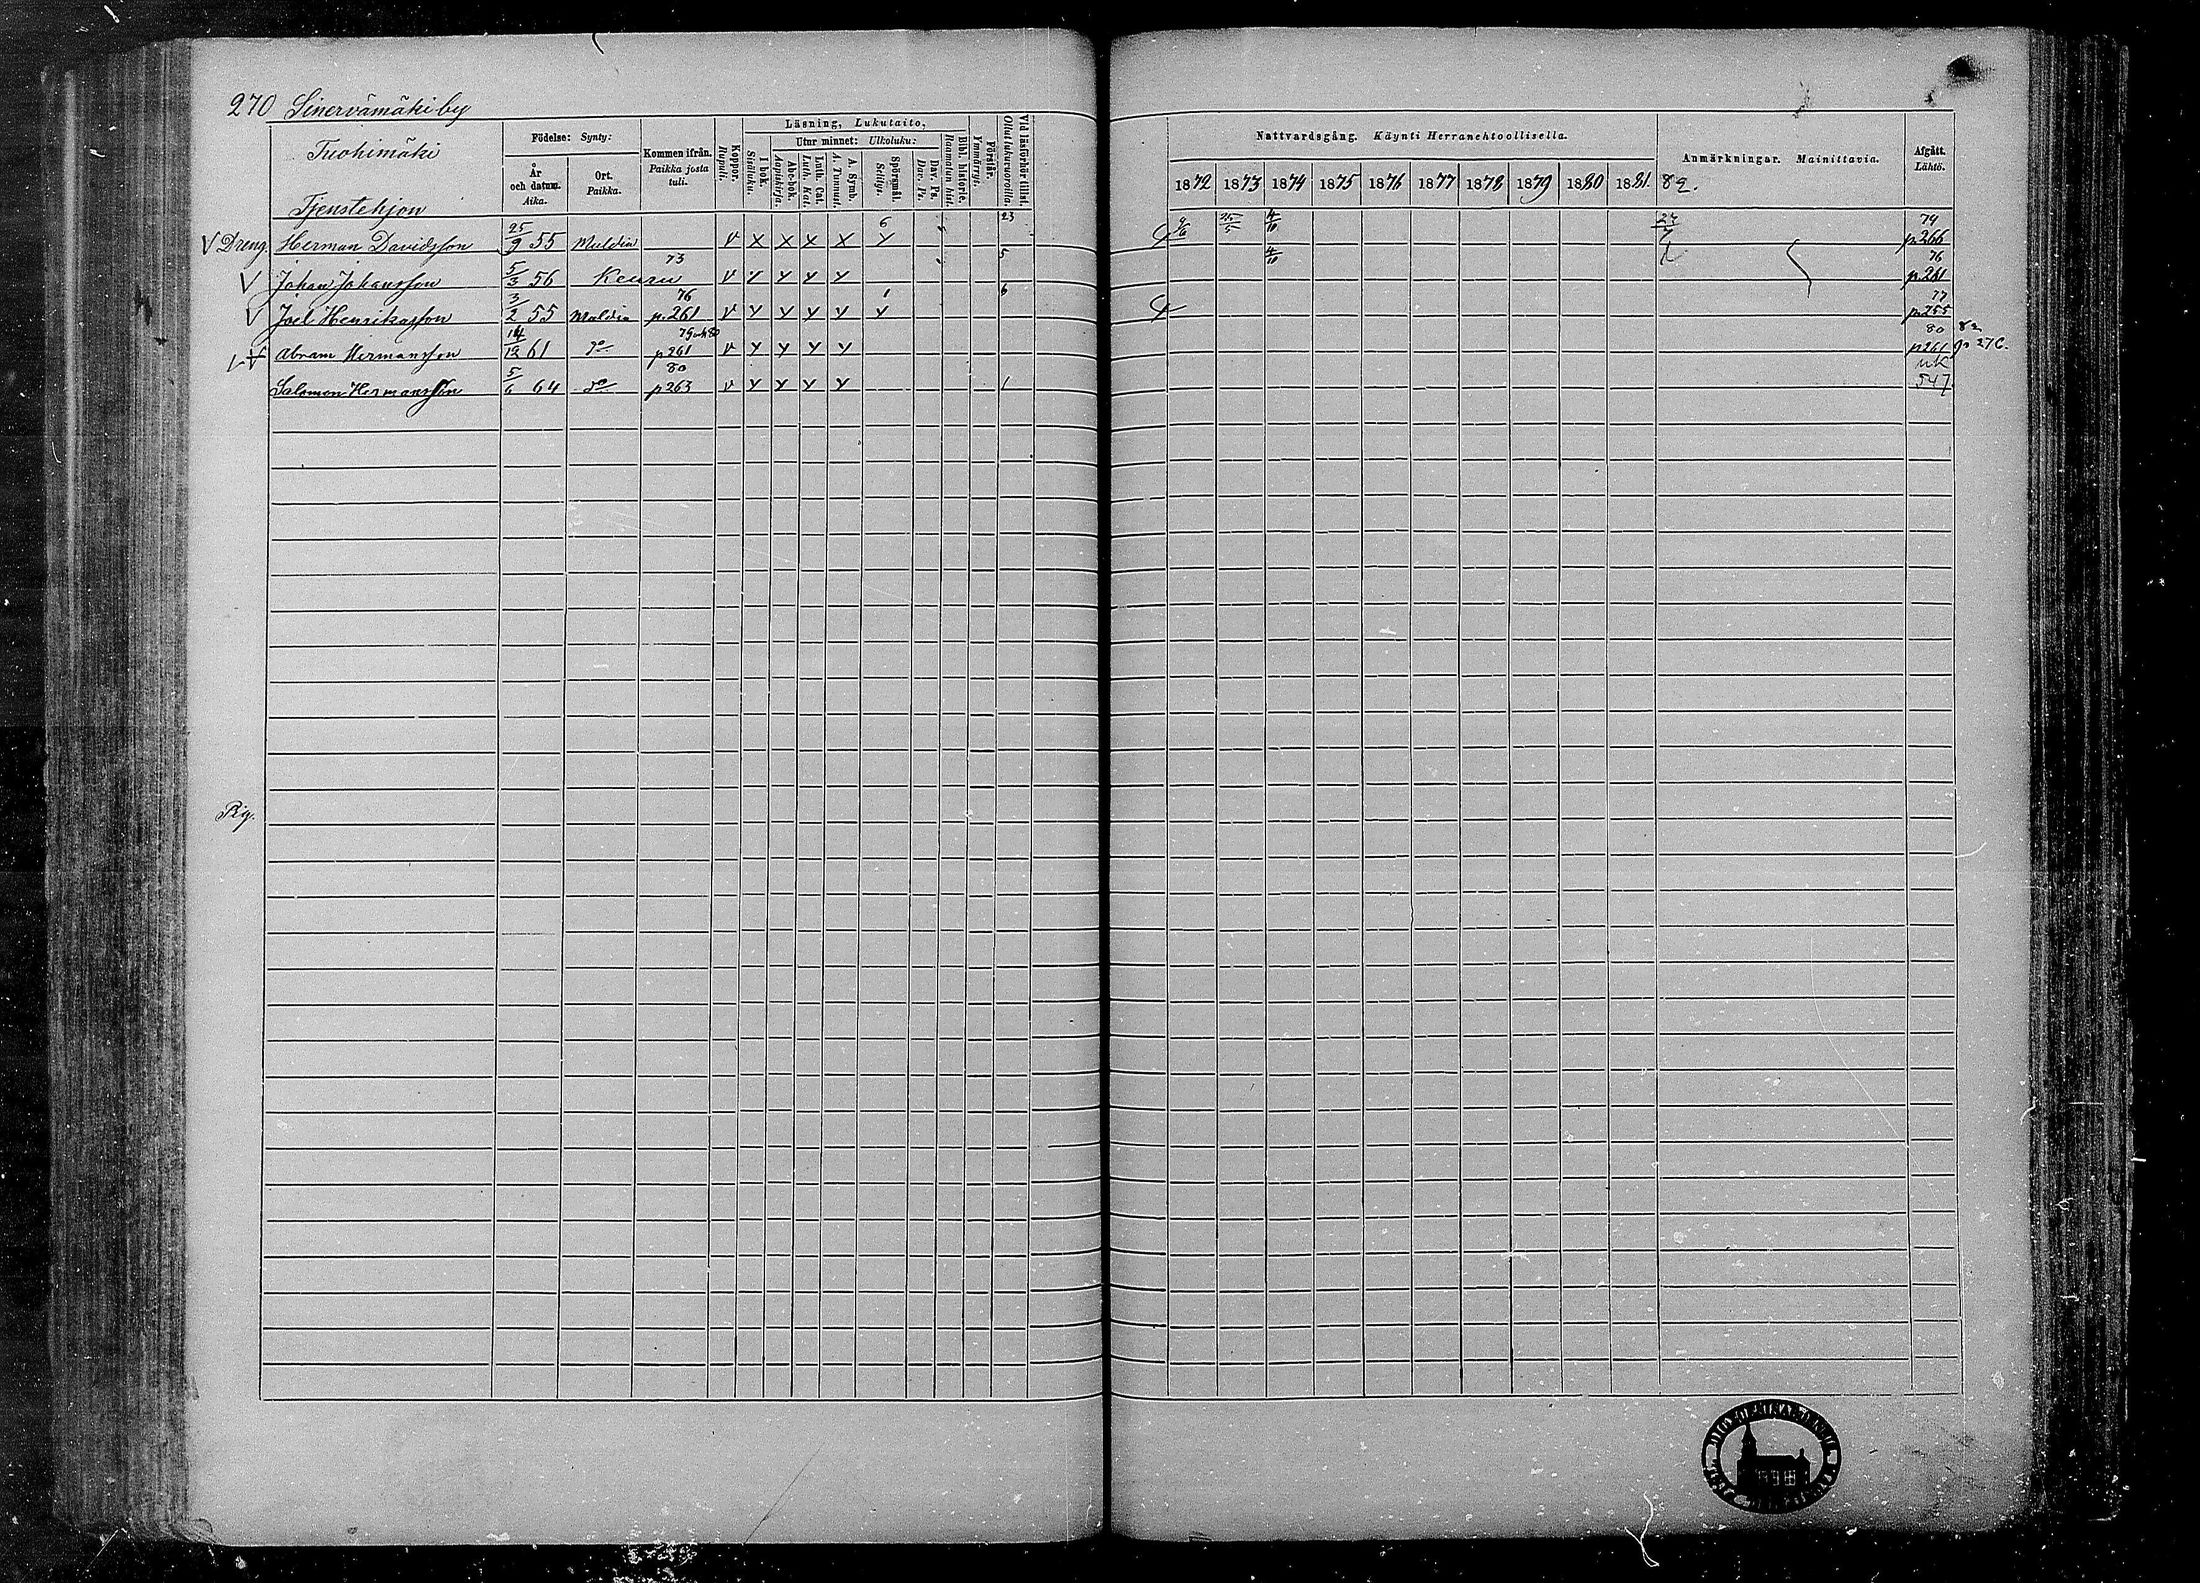 270 Sinervämäki by
Tuohimäki
Tjenstehjon
Födelse: Synty:
År och datum. Aika.
Ort. Paikka.
Kommen ifrån. Paikka josta tuli.
Koppor. Rupuli.
Läsning, Lukutaito,
I bok. Sisäluku.
Utur minnet: Ulkoluku:
Abc-bok. Aapiskirja.
Luth. Cat. Luth. Kat.
A. Symb. A. Tunnust.
Spörsmål. Selitys.
Dav. Ps. Dav. Ps.
Bibl. historie. Raamatun hist.
Förstår. Ymmärrys.
Vid läsförhör tillst. Ollut lukuvuoroilla.
Nattvardsgång. Käynti Herranehtoollisella.
1872 1873 1874 1875 1876 1877 1878 1879 1880 1881 82.
Anmärkningar. Mainittavia.
Afgått. Lähtö.
V Dreng Herman Davidsson 25/9 55 Muldia V X X X X 6 Y 23 9/6 25/5 4/10 27/7 79 p.266
V Johan Johansson 5/3 56 Keuru 73 V Y Y Y Y 5 4/10 76 p.261
V Joel Henriksson 3/2 55 Muldia 76 p.261 V Y Y Y Y 1 Y 6 77 p.255
Abram Hermansson 14/12 61 do p261 V Y Y Y Y 80 p261 82
Salomon Hermansson 5/6 64 do 80 p263 V Y Y Y Y 1 uk 547
Pig.